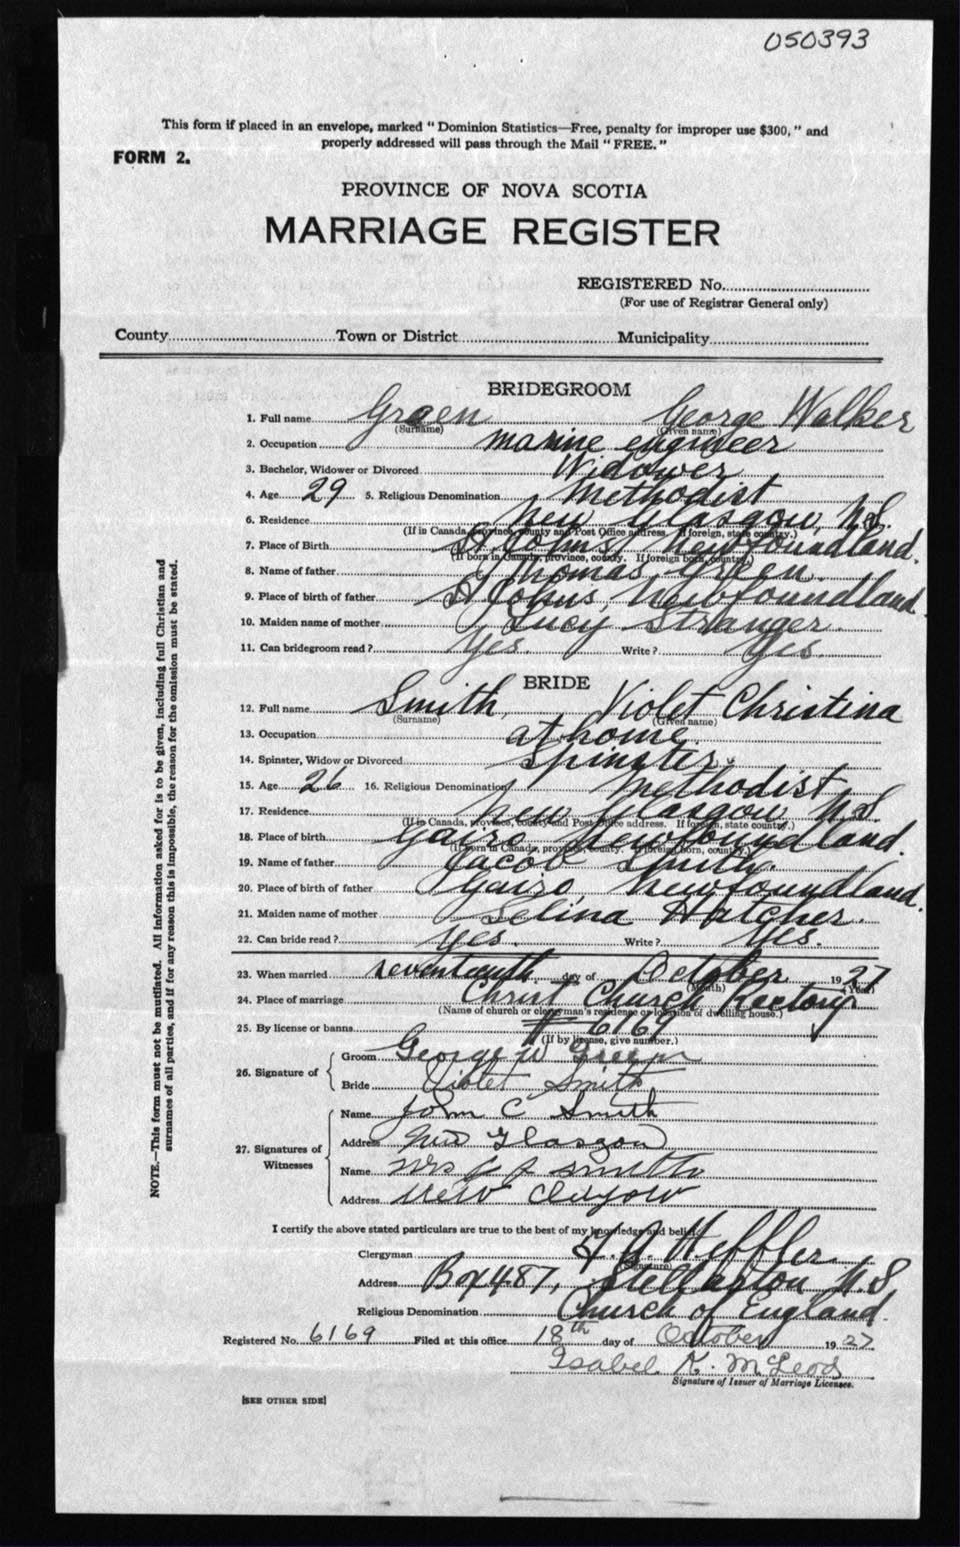 050393
This form if placed in an envelope, marked "Dominion Statistics—Free, penalty for improper use $300," and
properly addressed will pass through the Mail "FREE."
FORM 2.
PROVINCE OF NOVA SCOTIA
MARRIAGE REGISTER
REGISTERED No.
(For use of Registrar General only)
County Town or District Municipality
BRIDEGROOM
1. Full name Green George Walker
(Surname) (Given name)
2. Occupation marine engineer
3. Bachelor, Widower or Divorced Widower
4. Age 29 5. Religious Denomination Methodist
6. Residence New Glasgow, N.S.
(If in Canada, province, county and Post Office address. If foreign, state country.)
7. Place of Birth St Johns, Newfoundland.
(If born in Canada, province, county. If foreign born, country.)
8. Name of father Thomas Green.
9. Place of birth of father St Johns, Newfoundland.
10. Maiden name of mother Lucy Stranger.
11. Can bridegroom read? Yes. Write? Yes.
BRIDE
12. Full name Smith, Violet Christina
(Surname) (Given name)
13. Occupation at home,
14. Spinster, Widow or Divorced Spinster.
15. Age 26 16. Religious Denomination Methodist
17. Residence New Glasgow N.S.
(If in Canada, province, county and Post Office address. If foreign, state country.)
18. Place of birth Newfoundland.
(If born in Canada, province, county. If foreign born, country.)
19. Name of father Jacob Smith.
20. Place of birth of father Newfoundland.
21. Maiden name of mother Selina Hatcher.
22. Can bride read? Yes. Write? Yes.
23. When married seventeenth day of October 1927
(Month) (Year)
24. Place of marriage Christ Church Rectory
(Name of church or clergyman's residence or location of dwelling house.)
25. By license or banns # 6169
(If by license, give number.)
26. Signature of Groom George W Green
Bride Violet Smith
27. Signatures of Witnesses Name John C Smith
Address New Glasgow
Name Mrs J J Smith
Address New Glasgow
I certify the above stated particulars are true to the best of my knowledge and belief.
Clergyman Heffler
(Signature)
Address Box 487, Stellarton N.S
Religious Denomination Church of England.
Registered No. 6169 Filed at this office 18th day of October 1927
Isabel K. McLeod
Signature of Issuer of Marriage Licenses.
[SEE OTHER SIDE]
NOTE.—This form must not be mutilated. All information asked for is to be given, including full Christian and
surnames of all parties, and if for any reason this is impossible, the reason for the omission must be stated.